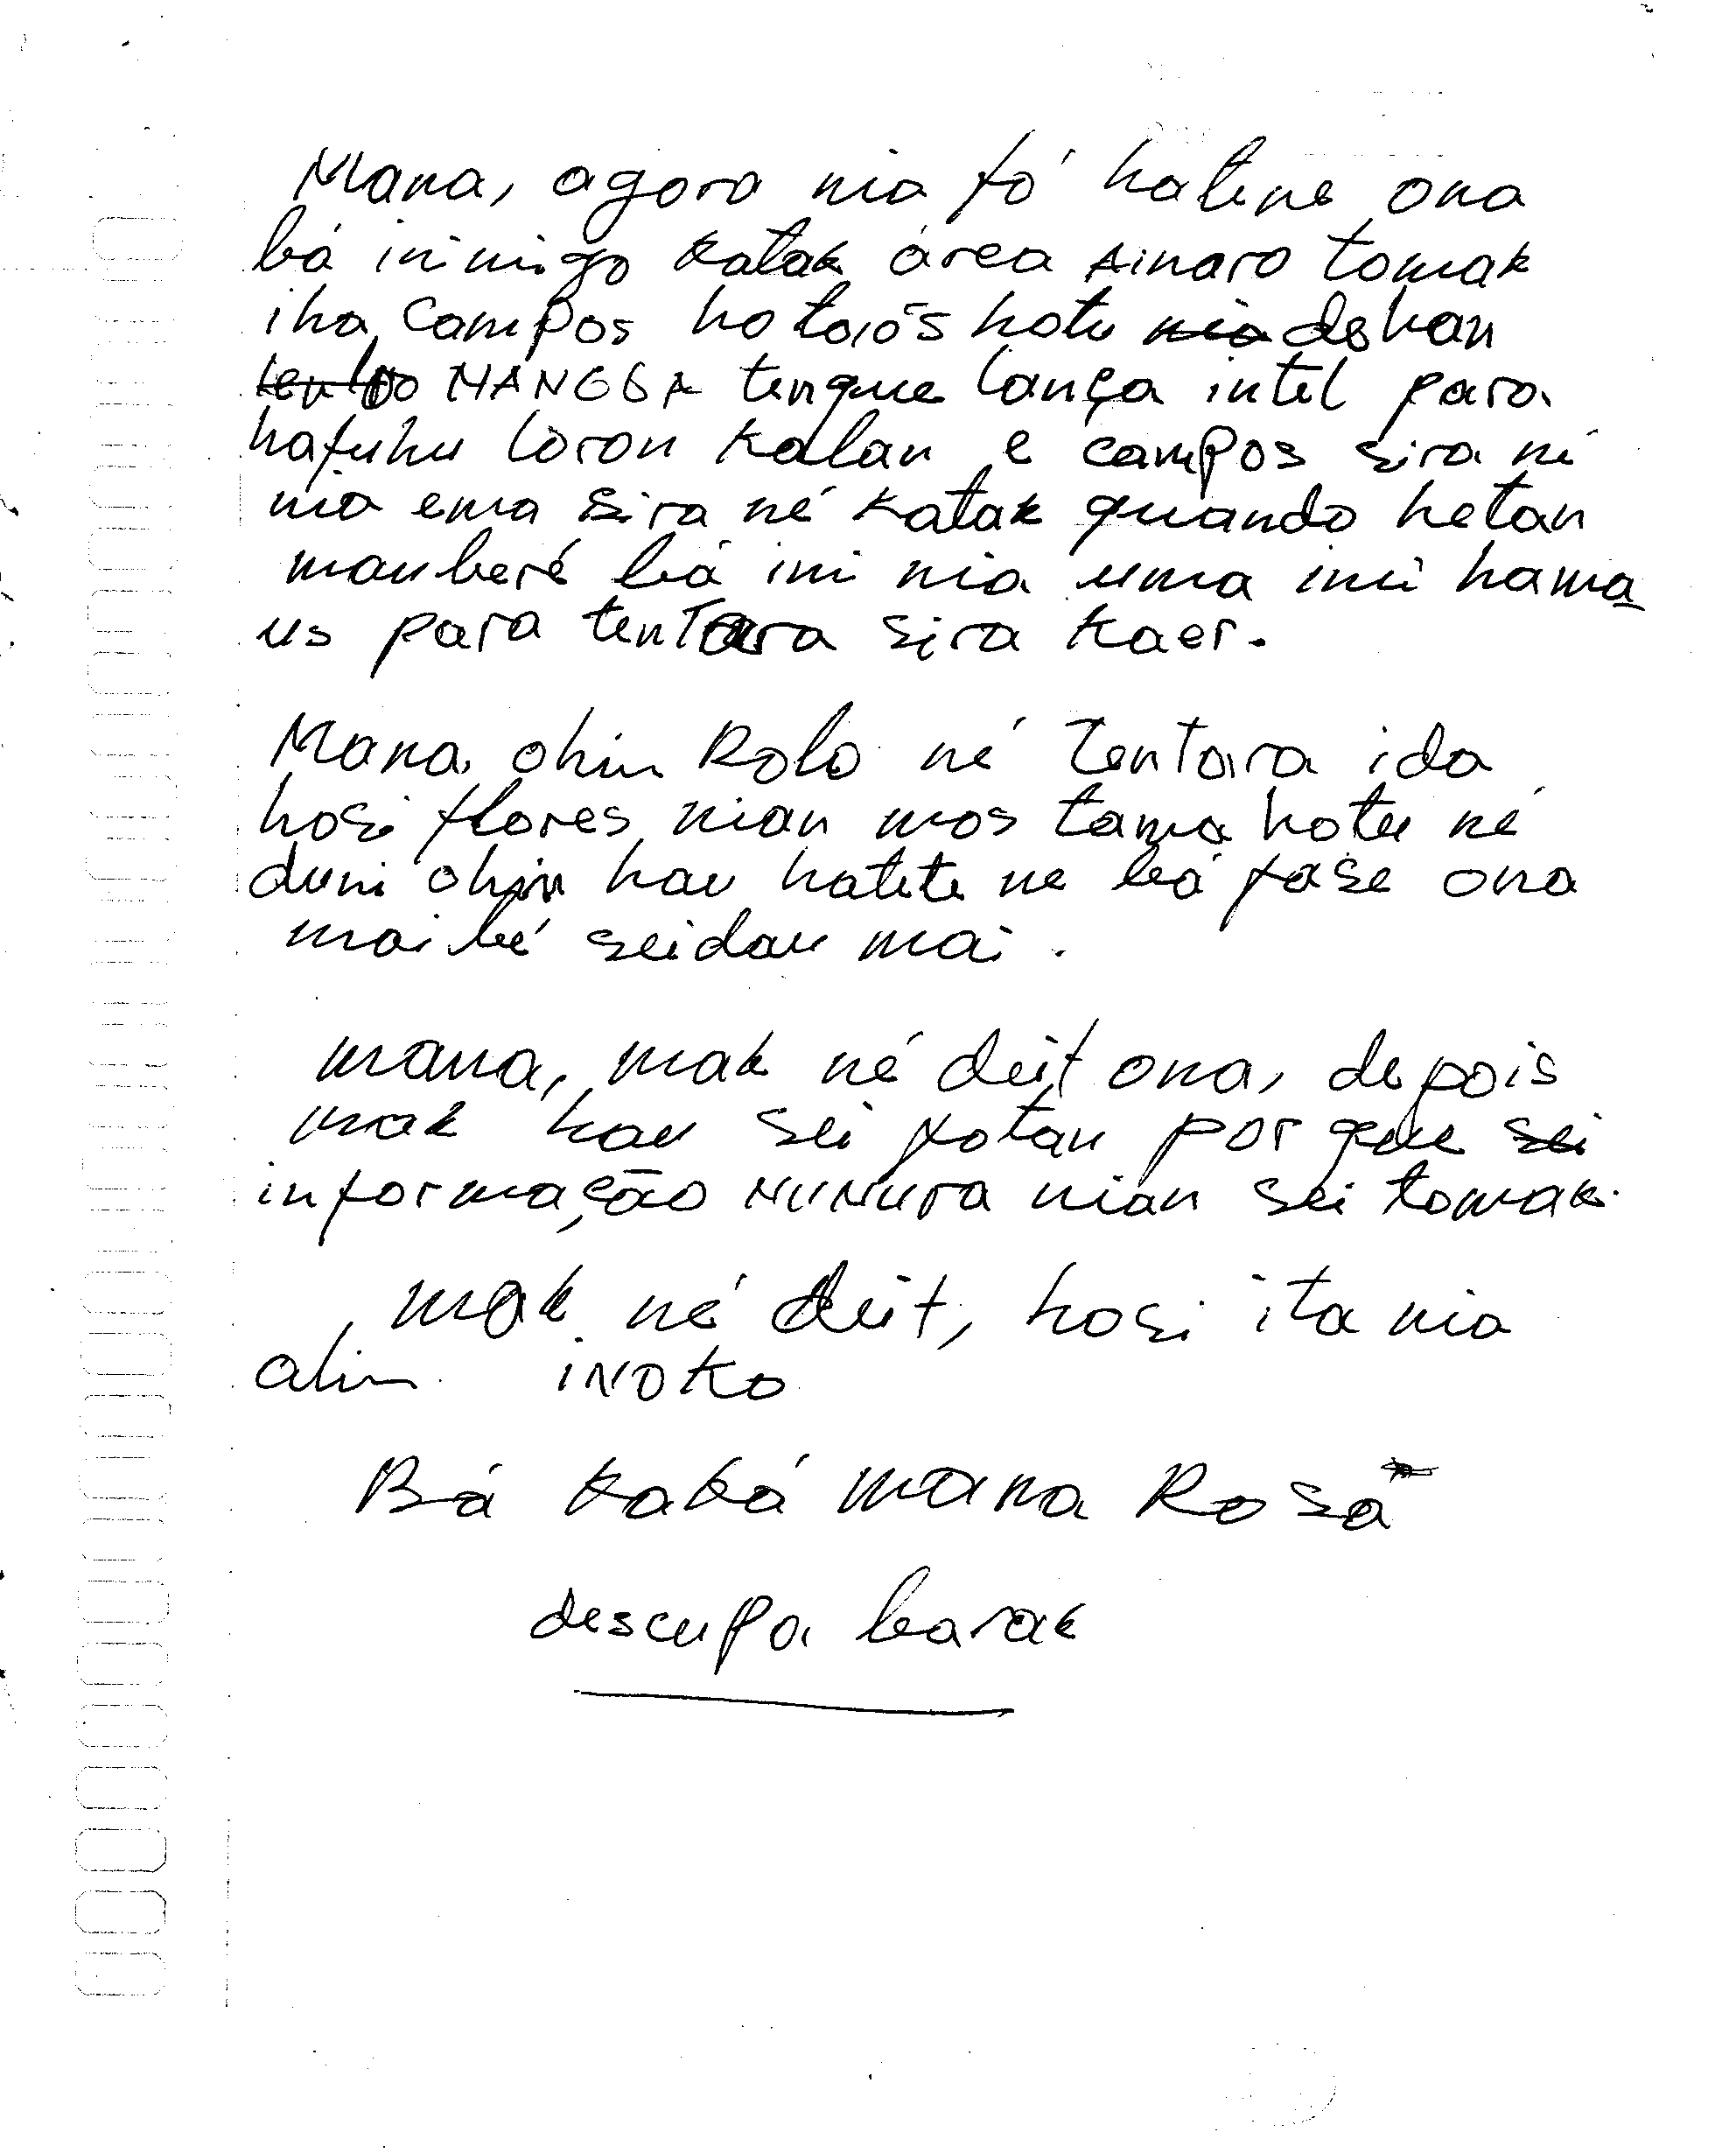 Mana, agora nia fó hatene ona
bá inimigo katak área Ainaro tomak
iha campos ho taiós hotu nia dehan
MANGGA tenque lança intel para
hafuhu loron kalan e campos sira né
nia ema sira né katak quando hetan
mauberé bá imi nia uma imi hama
us para tentara sira kaer.
Mana ohin Rolo né tentara ida
hosi flores nian mos tama hotu né
duni ohin hau hatete ne bá fase ona
maibé seidau mai.
mana, mak né deit ona, depois
mak hau sei fotau por que sei
informação NUNURA nian sei tomak.
mak né deit, hosi ita nia
alin iNOKO
Bá kaká mana Rosa
descupa barak